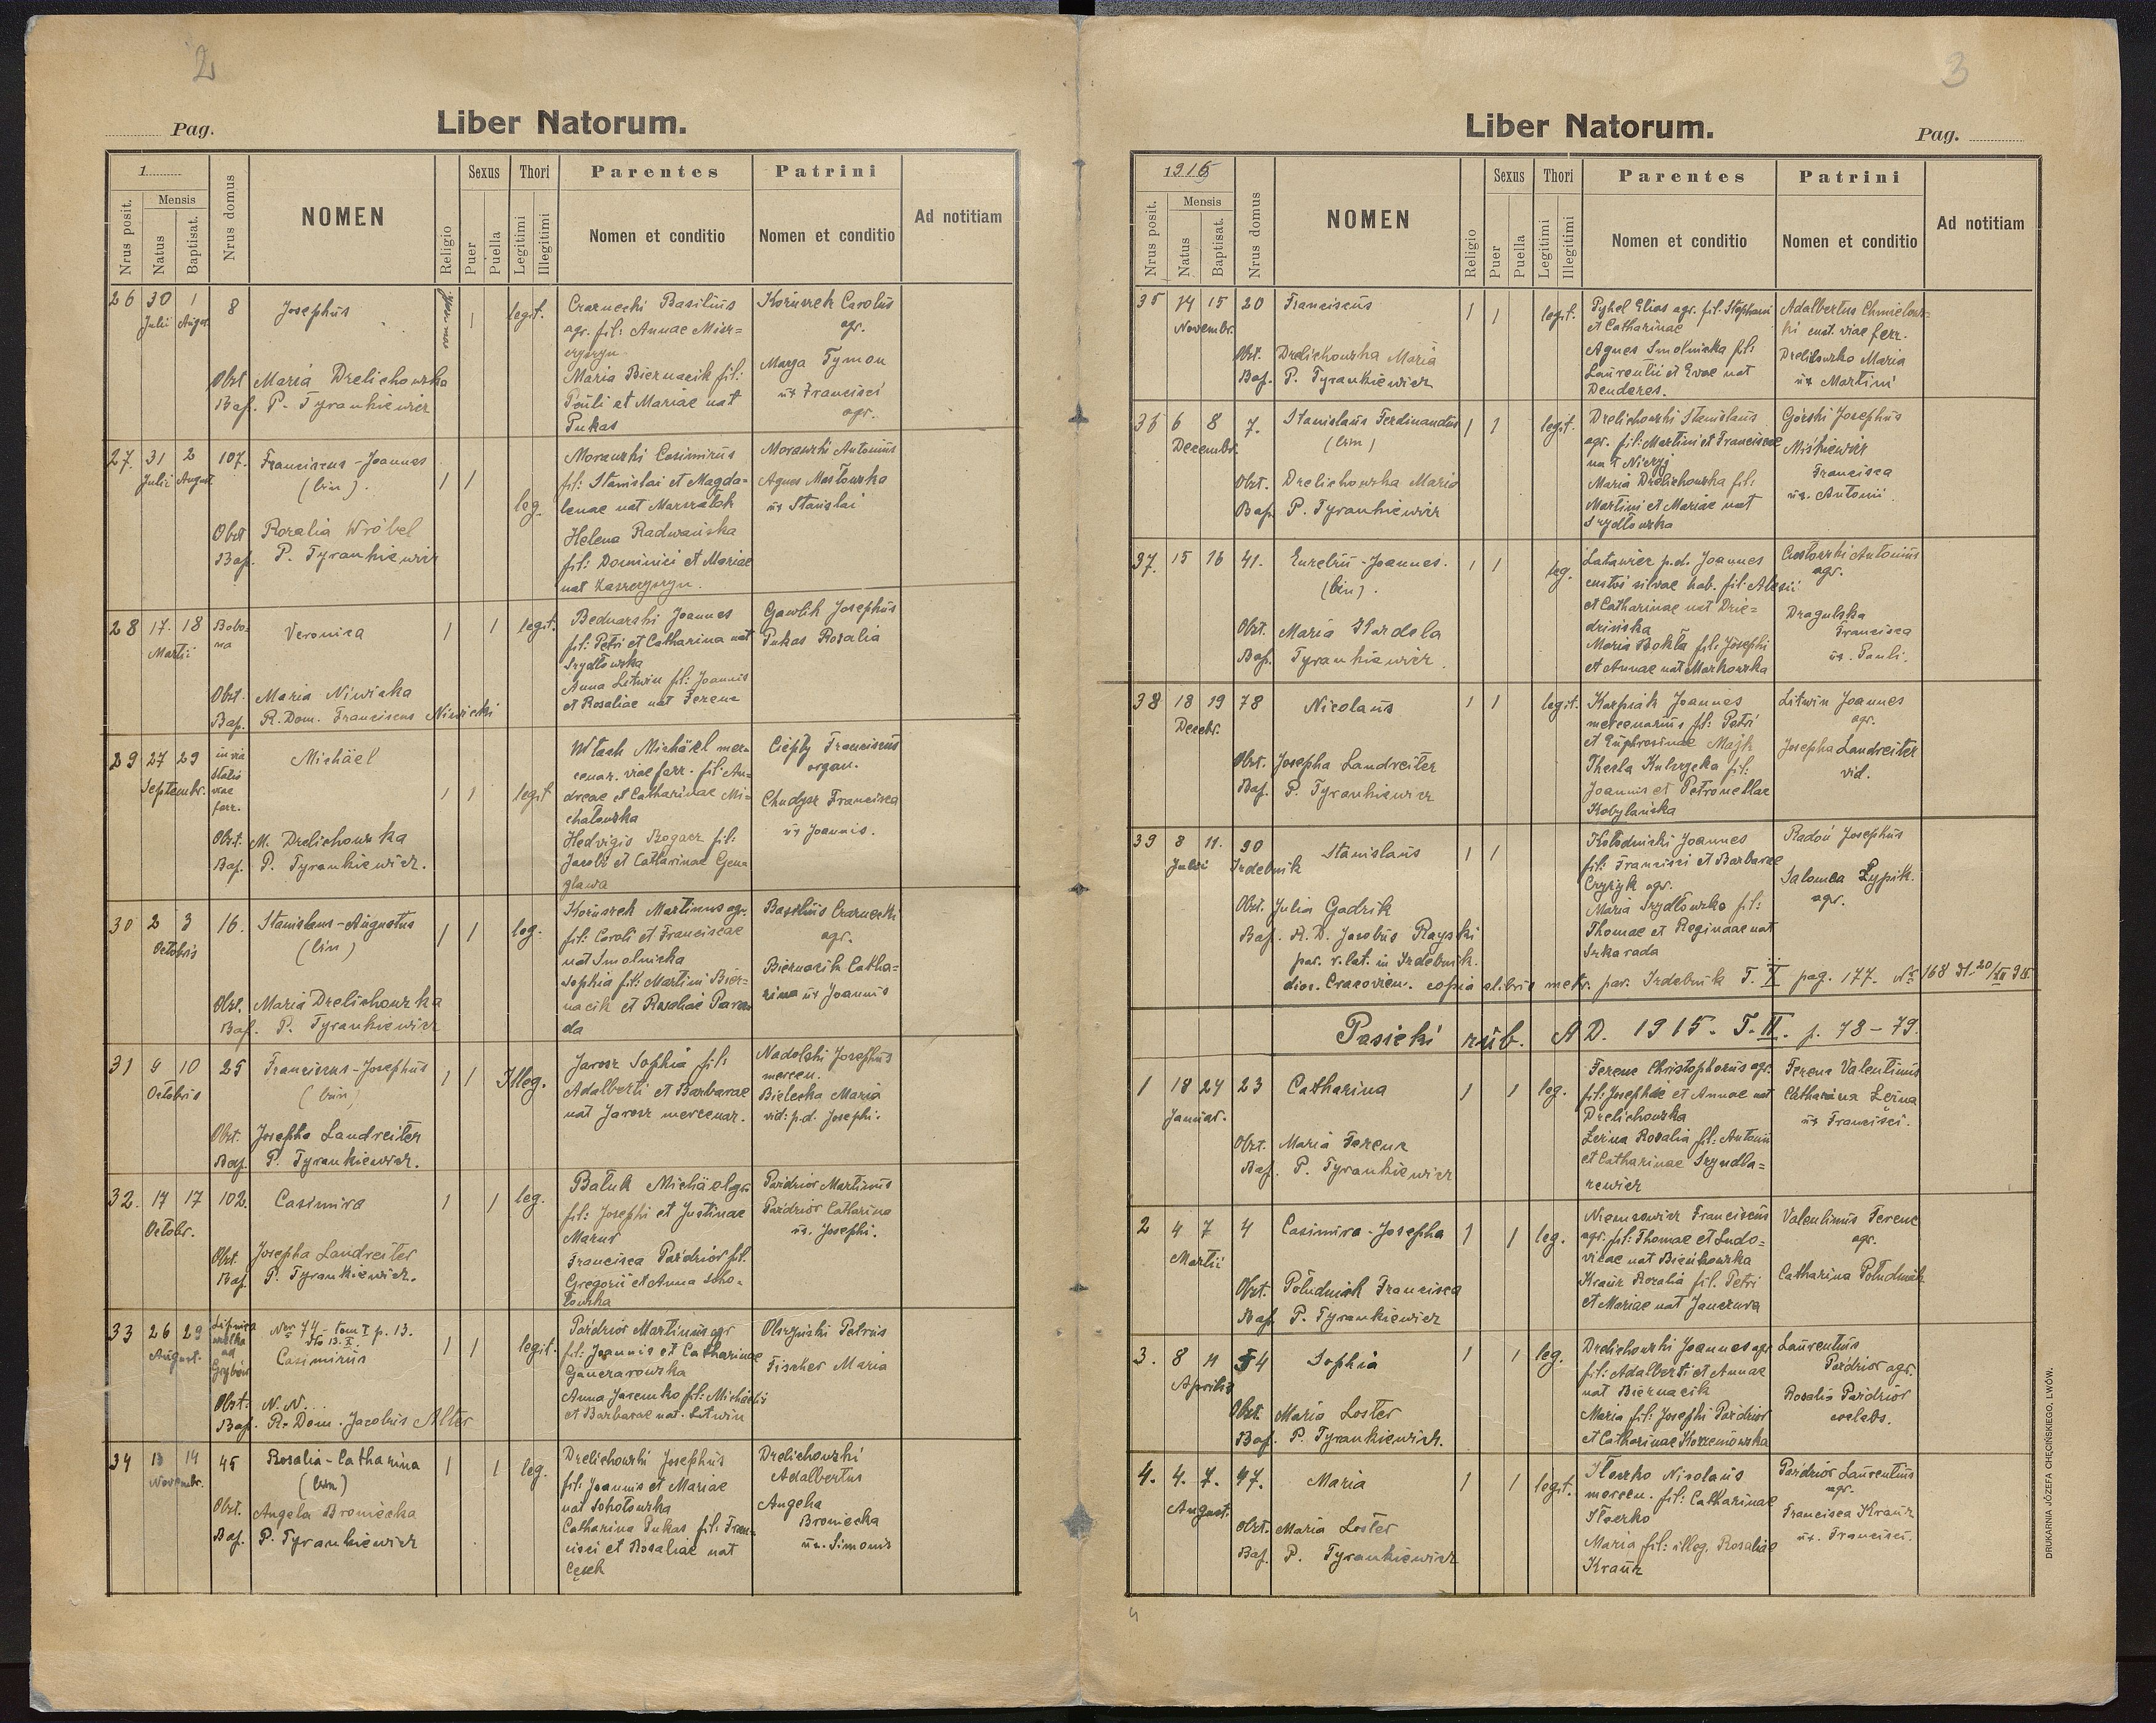 2
Pag.
Liber Natorum.
1
Nrus posit.
Mensis
Natus
Baptisat.
Nrus domus
NOMEN
Religio
Sexus
Puer
Puella
Thori
Legitimi
Illegitimi
Parentes
Nomen et conditio
Patrini
Nomen et conditio
Ad notitiam
26 30 1 8 Josephus 1 legit.
Julii August
Czarnecki Basilius
agr. fil: Annae
Maria Biernacik fil:
Pauli et Mariae nat
Pukas
Koruszek Carolus
agr.
Tymon
ux Francisci
agr.
Obst Maria Drelichowska
Bap. P. Tyrankiewicz
27. 31 2 107. Franciscus-Joannes 1 1 leg.
Julii August (bin).
Morawski Casimirus
fil: Stanislai et Magda=
lenae nat Marszałek
Helena Radwańska
fil: Dominici et Mariae
nat
Morawski Antonius
Agnes Masłowska
ux Stanislai
Obst Rozalia Wróbel
Bap. P. Tyrankiewicz
28 17. 18 Bobo=
na Veronica 1 1 legit.
Martii
Bednarski Joannes
fil: Petri et Catharina nat
Szydłowska
Anna Litwin fil: Joannis
et Rosaliae nat Ferenc
Gawlik Josephus
Pukas Rosalia
Obst. Maria Niwicka
Bap. R. Dom. Franciscus Niwicki
29 27 29 in via
viae
ferr. Michäel 1 1 legit
Septembr.
Michäel mer=
cenar. viae ferr. fil: An=
dreae et Catharinae Mi=
chałowska
Hedvigis Rogacz fil:
Jacobi et Catharinae
Ciepły Franciscus
organ.
Chudysz Francisca
ux Joannis.
Obst. M. Drelichowska
Bap. P. Tyrankiewicz.
30 2 3 16. Stanislaus-Augustus 1 1 leg.
Octobris (bin)
Koruszek Martinus agr.
fil: Caroli et Franciscae
nat Smolnicka
Sophia fil: Martini Bier=
nacik et Rosaliae
da
Basilius Czarnecki
agr.
Biernacik Catha=
rina ux Joannis
Obst. Maria Drelichowska
Bap. P. Tyrankiewicz
31 9 10 25 Franciscus-Josephus 1 1 Illeg.
Octobris (bin)
Jarosz Sophia fil:
Adalberti et Barbarae
nat Jarosz mercenar.
Nadolski Josephus
mercen.
Bielecka Maria
vid: p.d. Josephi.
Obst. Josepha Landreiter
Bap. P. Tyrankiewicz.
32. 14 17 102. Casimira 1 1 leg.
Octobr.
Bałuk Michäel agr.
fil: Josephi et Justinae
Mazur
Francisca Paździor fil.
Gregorii et Anna Soko=
łowska
Paździor Martinus
Paździor Catharina
ux. Josephi.
Obst. Josepha Landreiter
Bap. P. Tyrankiewicz.
33 26 29 Lipnica
wielka
ad
Grybów Nr 74 - tom I p. 13.
August. Casimirus 1 1 legit.
Paździor Martinus agr
fil: Joannis et Catharinae
Anna Jaremko fil: Michaelis
et Barbarae nat. Litwin
Olszyński Petrus
Fischer Maria
Obst. N. N...
Bap. R. Dom. Jacobus Alter
34 13 14 45 Rosalia-Catharina 1 1 leg.
Novembr. (bin)
Drelichowski Josephus
fil: Joannis et Mariae
nat Sokołowska
Catharina Pukas fil: Fran=
cisci et Rosaliae nat
Drelichowski
Adalbertus
Angela
Broniecka
ux. Simonis
Obst. Angela Broniecka
Bap. P. Tyrankiewicz
3
Liber Natorum.
Pag.
1915
Nrus posit.
Mensis
Natus
Baptisat.
Nrus domus
NOMEN
Religio
Sexus
Puer
Puella
Thori
Legitimi
Illegitimi
Parentes
Nomen et conditio
Patrini
Nomen et conditio
Ad notitiam
35 14 15 20 Franciscus 1 1 legit.
Novembr.
Elias agr. fil. Stephani
et Catharinae
Agnes Smolnicka fil:
Laurentii et Evae nat
Denderes.
Adalbertus Chmielow=
ski cust. viae ferr.
Drelichowska Maria
ux Martini
Obst. Drelichowska Maria
Bap. P. Tyrankiewicz
36 6 8 7. Stanislaus Ferdinandus 1 1 legit.
Decembr. (bin)
Drelichowski Stanislaus
agr. fil: Martini et Franciscae
nat
Maria Drelichowska fil:
Martini et Mariae nat
Szydłowska
Górski Josephus
Miśkiewicz
Francisca
ux. Antonii.
Obst. Drelichowska Maria
Bap. P. Tyrankiewicz
37. 15 16 41. Joannes. 1 1 leg.
(bin).
Latawiec p.d. Joannes
custos silvae hab. fil: Alexii
et Catharinae nat Dzie=
dzińska
Maria Bokla fil: Josephi
et Annae nat Markowska
Antonius
agr.
Dragulska
Francisca
ux. Pauli.
Obst. Maria Stardela
Bap. Tyrankiewicz.
38 18 19 78 Nicolaus 1 1 legit.
Decebr.
Karpiak Joannes
mercenarius fil: Petri
et Euphrosinae Majk
Thecla Kulczycka fil:
Joannis et Petronellae
Kobylańska
Litwin Joannes
agr.
Josepha Landreiter
vid.
Obst. Josepha Landreiter
Bap. P. Tyrankiewicz
39 8 11. 90 Stanislaus 1 1
Julii Izdebnik
Kołodziński Joannes
fil: Francisci et Barbarae
Czyżyk agr.
Maria Szydłowska fil:
Thomae et Reginae nat
Szkarada
Radoń Josephus
Salomea Łypik.
agr.
Obst. Julia Gadzik
Bap. R. D. Jacobus Rayski
par. r. lat. in Izdebnik.
dioc. Cracovien. copia e libris metr. par. Izdebnik T. X pag. 177. Nr 168
Pasieki rub. A D. 1915. T. II. p. 78-79.
1 18 24 23 Catharina 1 1 leg.
Januar.
Ferenc Christophorus agr.
fil: Josephae et Annae nat
Drelichowska
Rosalia fil: Antonii
et Catharinae Szyndla=
rewicz
Ferenc Valentinus
Catharina
ux Francisci.
Obst. Maria Ferenc
Bap. P. Tyrankiewicz
2 4 7 4 Casimira-Josepha 1 1 leg.
Martii
Niemcowicz Franciscus
agr. fil: Thomae et Ludo=
vicae nat Bieńkowska
Krauz Rozalia fil. Petri
et Mariae nat Janczura
Valentinus Ferenc
agr.
Catharina Południak
Obst. Południak Francisca
Bap. P. Tyrankiewicz
3. 8 11 54 Sophia 1 1 leg.
Aprilis
Drelichowski Joannes agr
fil: Adalberti et Annae
nat Biernacik
Maria fil: Josephi Paździor
et Catharinae Korzeniowska
Laurentius
Paździor agr.
Rosalia Paździor
coelebs.
Obst. Maria Loster
Bap. P. Tyrankiewicz.
4. 4. 7. 47. Maria 1 1 legit.
August.
Nicolaus
mercen. fil: Catharinae
Maria fil: illeg. Rosaliae
Krauz
Paździor Laurentius
agr.
Francisca Krauz
ux. Francisci.
Obst. Maria Loster
Bap. P. Tyrankiewicz
DRUKARNIA JÓZEFA CHĘCIŃSKIEGO, LWÓW.
4